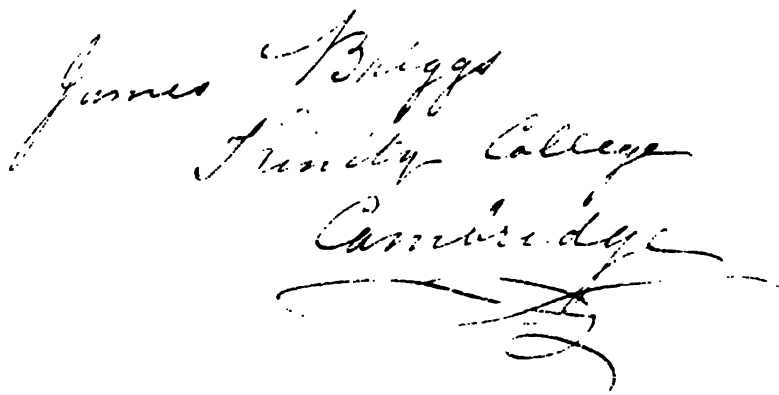 James Briggs
Trinity College
Cambridge